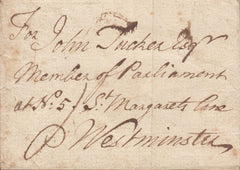 For John Tucker Esqr
Member of Parliament
at No. 5 St. Margarets Lane
Westminster